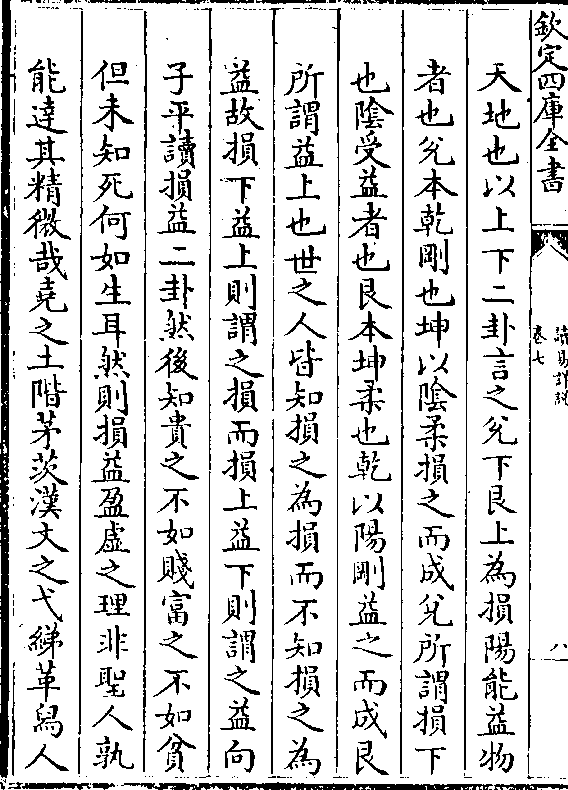 欽定四庫全書
讀易詳說
卷七
八
天地也以上下二卦言之兊下艮上為損陽能益物
者也兊本乾剛也坤以陰柔損之而成兊所謂損下
也陰受益者也艮本坤柔也乾以陽剛益之而成艮
所謂益上也世之人皆知損之為損而不知損之為
益故損下益上則謂之損而損上益下則謂之益向
子平讀損益二卦然後知貴之不如賤富之不如貧
但未知死何如生耳然則損益盈虛之理非聖人孰
能達其精微哉堯之土階茅茨漢文之弋綈革舄人